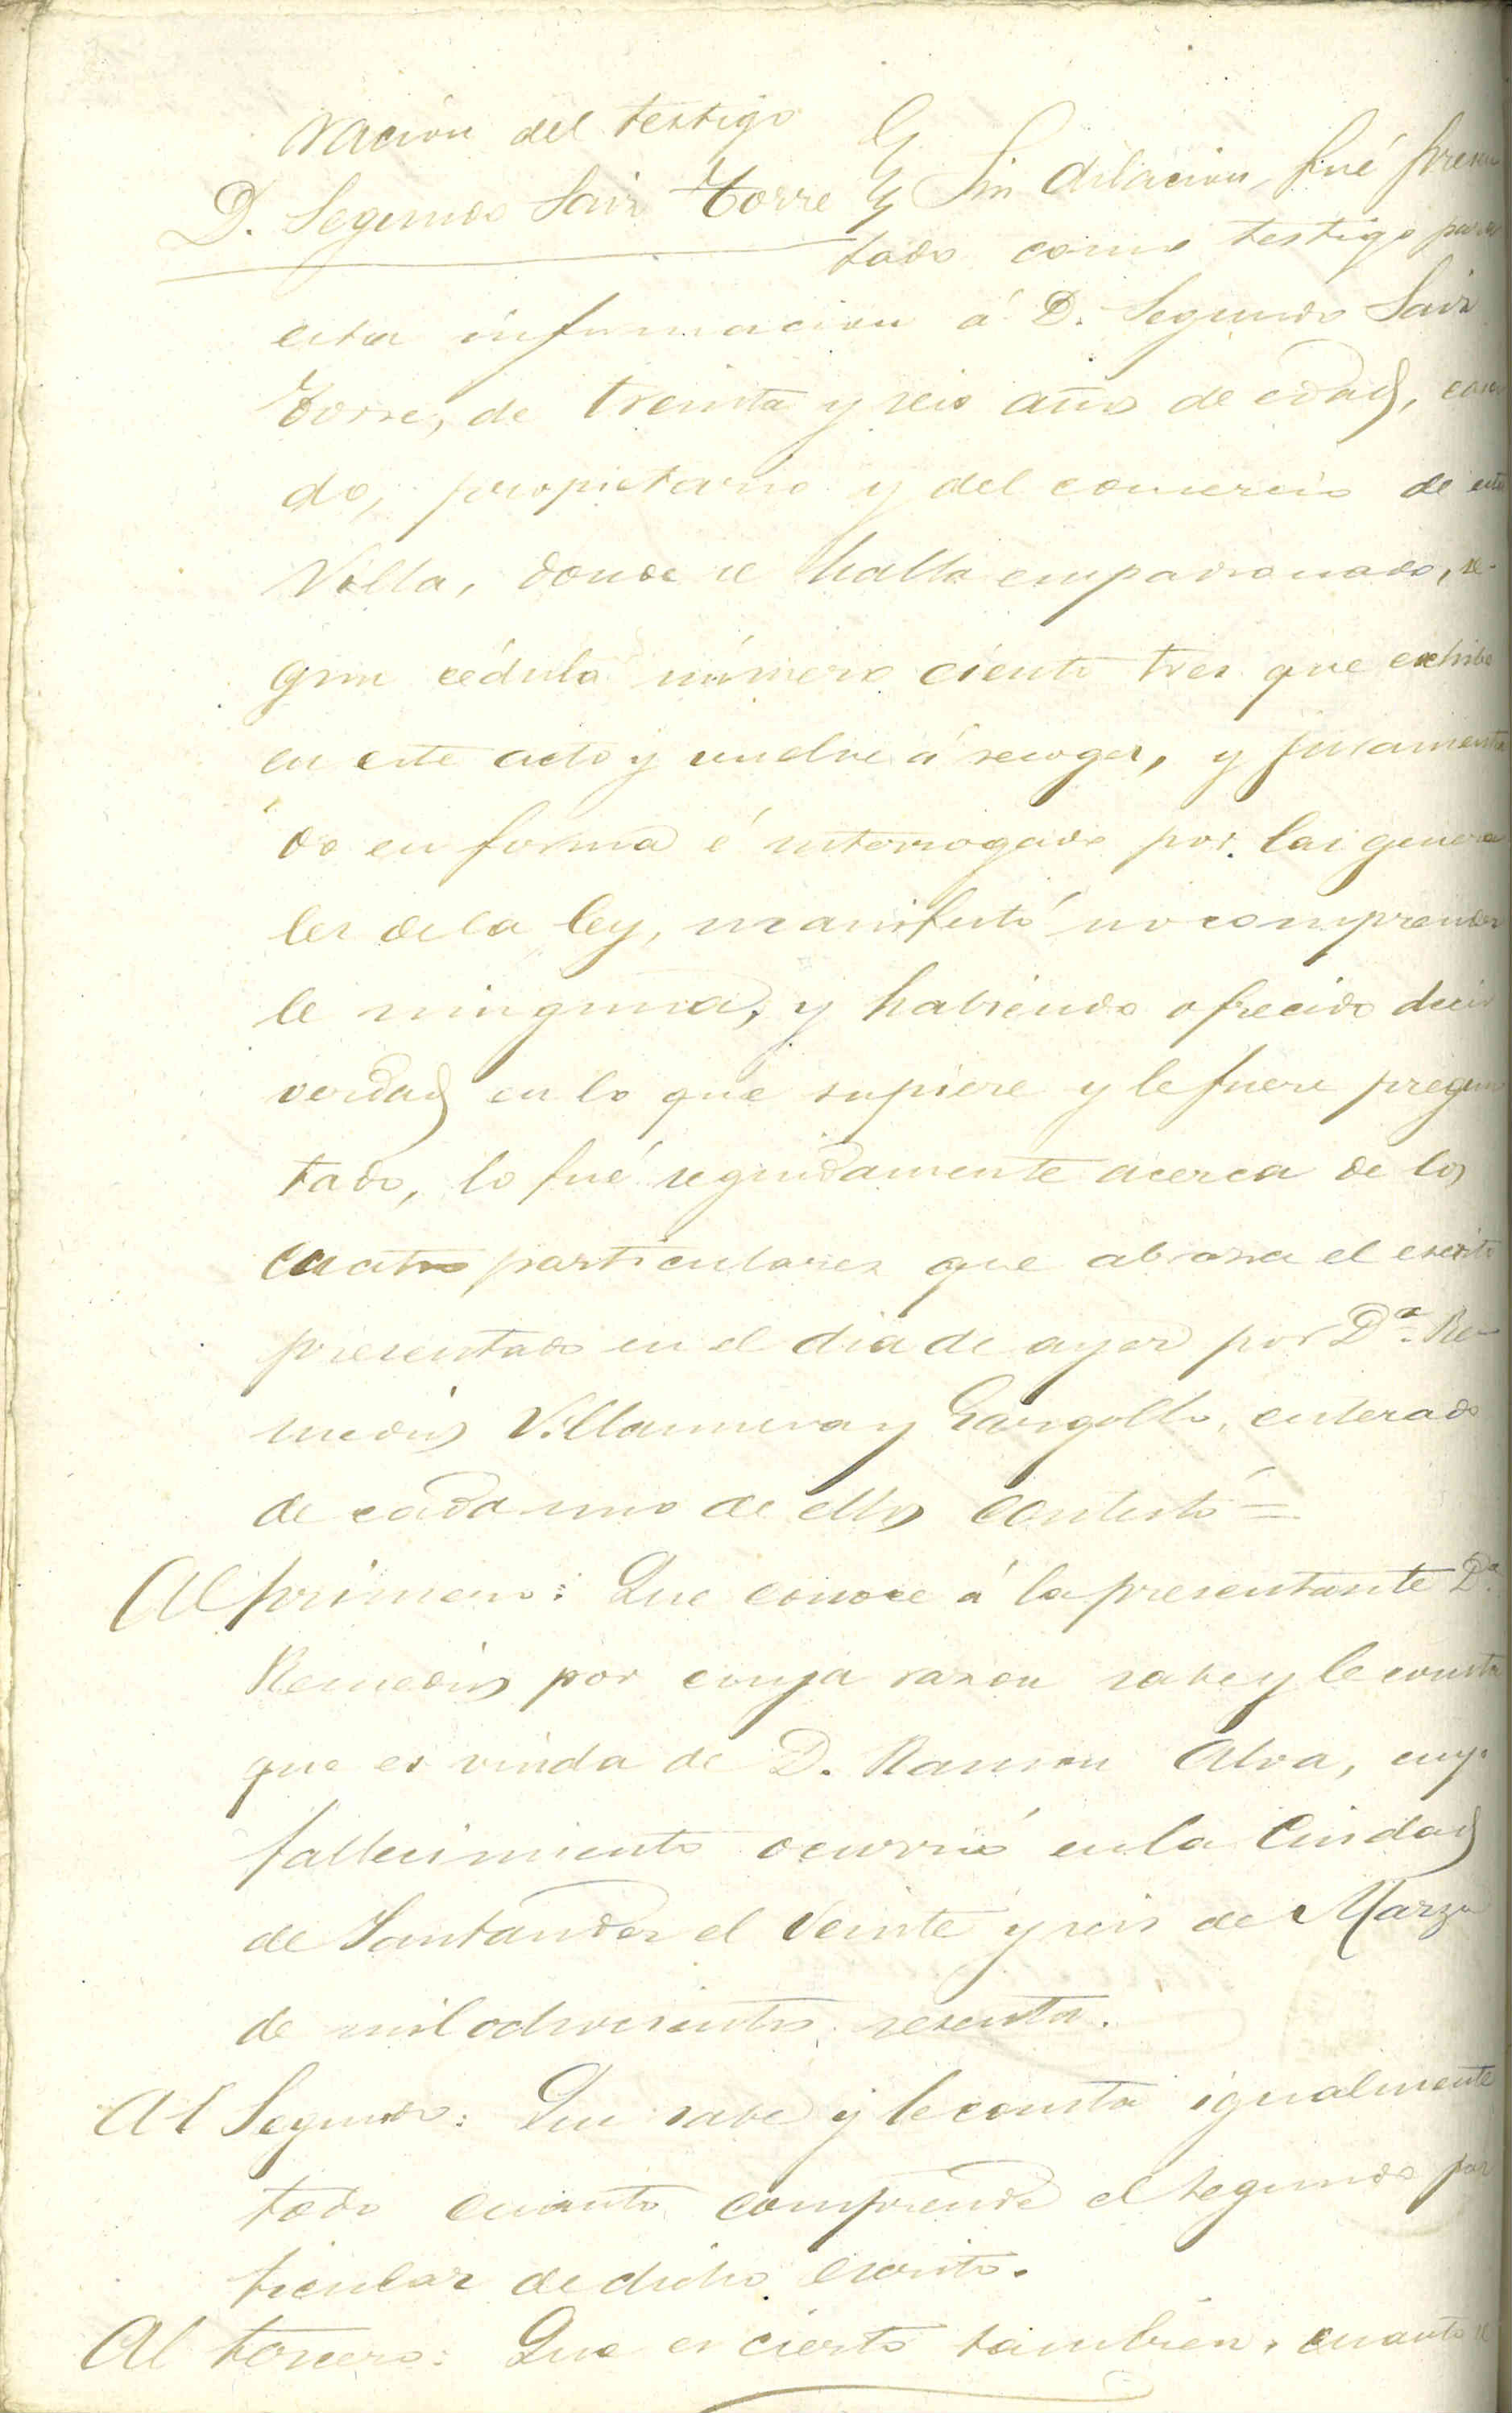 racion del testigo
D. Segundo Sainz Torre } Sin dilacion, fué presen
tado como testigo para
esta informacion á D. Segundo Sainz
Torre, de treinta y seis años de edad, casa
do, propietario y del comercio de esta
Villa, donde se halla empadronado, se-
gun cédula número ciento tres que exhibe
en este acto y vuelve á recoger, y juramenta
do en forma é interrogado por las genera
les de la ley, manifestó no comprender
le ninguna, y habiendo ofrecido decir
verdad en lo que supiere y le fuere pregun
tado, lo fué seguidamente acerca de los
cuatro particulares que abraza el escrito
presentado en el dia de ayer por Dª. Re-
medios Villanueva y Gargollo, enterado
de cada uno de ellos contestó =
Al primero: Que conoce á la presentante Dª.
Remedios por cuya razon sabe y le consta
que es viuda de D. Ramon Alva, cuyo
fallecimiento ocurrió en la Ciudad
de Santander el veinte y seis de Marzo
de mil ochocientos sesenta.
Al Segundo: Que sabe y le consta igualmente
todo cuanto comprende el segundo par
ticular de dicho escrito.
Al tercero: Que es cierto tambien, cuanto se